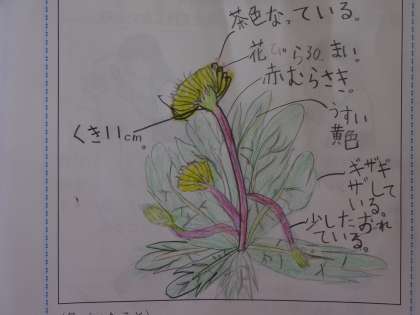 茶色なっている。
花びら30まい。
赤むらさき。
うすい
黄色
くき11cm。
ギザギ
ザして
いる。
少したおれ
ている。